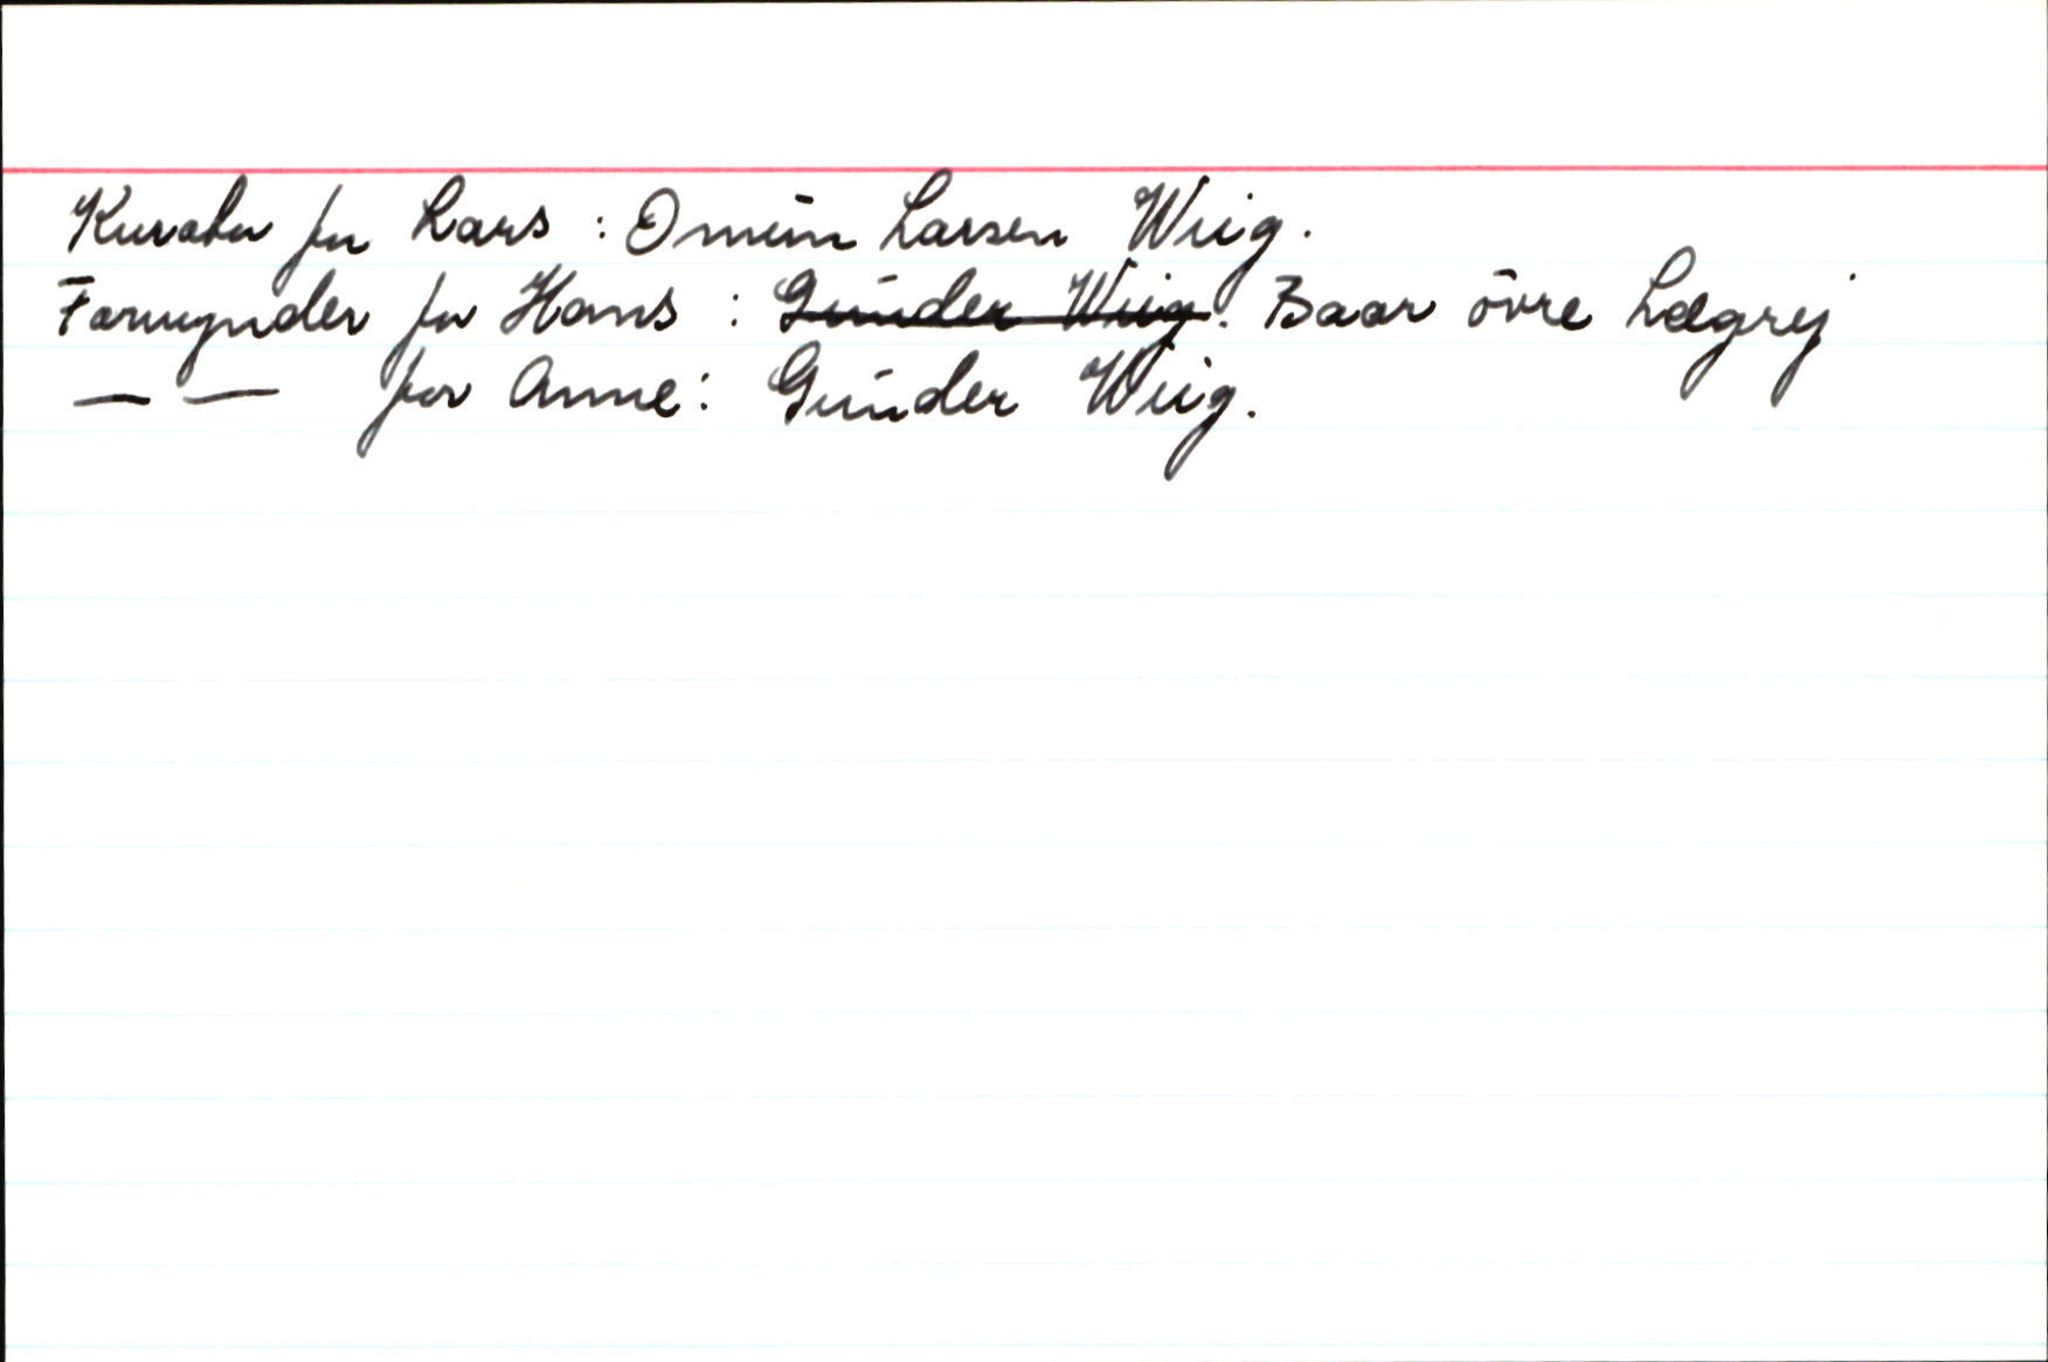 Kurator for Lars : Omün Larsen Wiig.
Formynder for Hans : ~~Gúnder Wiig~~. Baar övre Lægrej
— — for Anne : Gúnder Wiig.